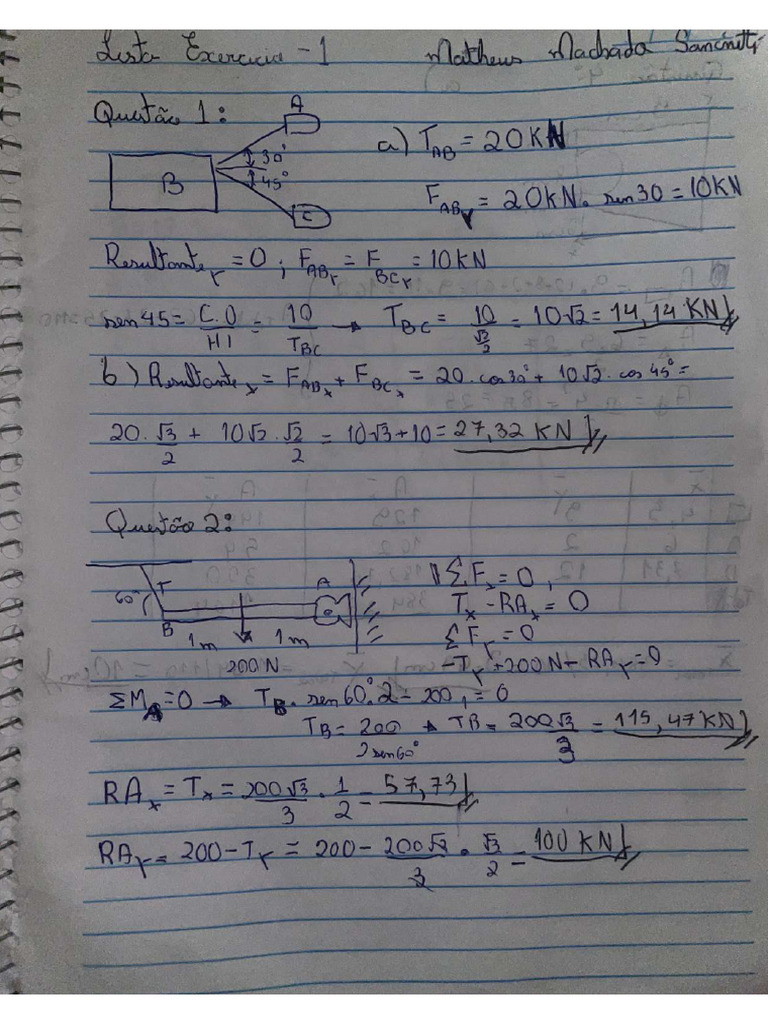 Lista Exercicio - 1 Matheus Machado
Questão 1:
A
30°
45°
B
C
a) T_AB = 20KN
F_ABy = 20KN . sen 30 = 10KN
Resultante_y = 0 ; F_ABy = F_BCy = 10KN
sen 45 = C.O/HI = 10/T_BC → T_BC = 10/(√2/2) = 10√2 = 14,14 KN
b) Resultante_x = F_ABx + F_BCx = 20 . cos 30° + 10√2 . cos 45° =
20 . √3/2 + 10√2 . √2/2 = 10√3 + 10 = 27,32 KN
Questão 2:
60°
T
A
B
1m 1m
200 N
ΣF_x = 0,
T_x - RA_x = 0
ΣF_y = 0
-T_y + 200N - RA_y = 0
ΣM_A = 0 → T_B . sen 60° . 2 - 200 . 1 = 0
T_B = 200/2 sen 60° → TB = 200√3/3 = 115,47 KN
RA_x = T_x = 200√3/3 . 1/2 = 57,73
RA_y = 200 - T_y = 200 - 200√3/3 . √3/2 = 100 KN